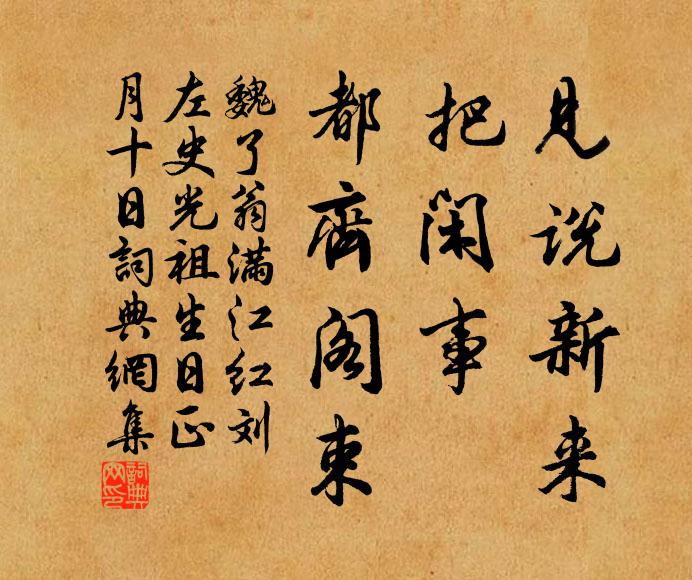 見说新来
把闲事
都齊阁束
魏了翁满江红刘
左史光祖生日正
月十日詞典網集
詞典網印